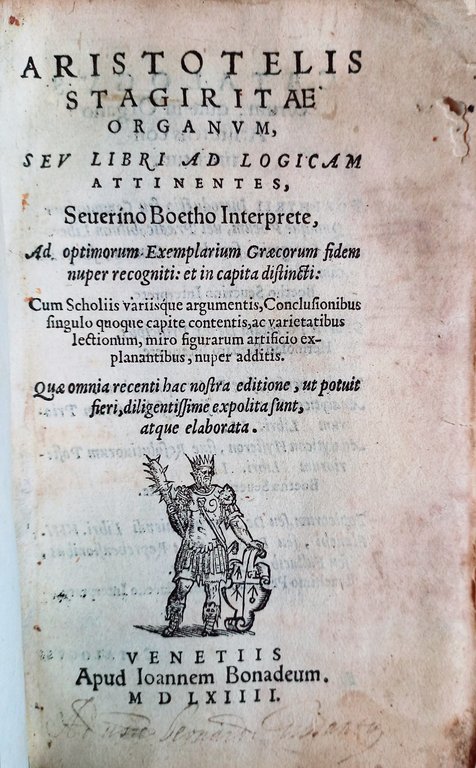 ARISTOTELIS
STAGIRITAE
ORGANVM,
SEV LIBRI AD LOGICAM
ATTINENTES,
Seuerino Boetho Interprete,
Ad optimorum Exemplarium Græcorum fidem
nuper recogniti: et in capita distincti:
Cum Scholiis variisque argumentis, Conclusionibus
singulo quoque capite contentis, ac varietatibus
lectionum, miro figurarum artificio ex-
planantibus, nuper additis.
Quæ omnia recenti hac nostra editione, ut potuit
fieri, diligentissime expolita sunt,
atque elaborata.
VENETIIS
Apud Ioannem Bonadeum.
MDLXIIII.